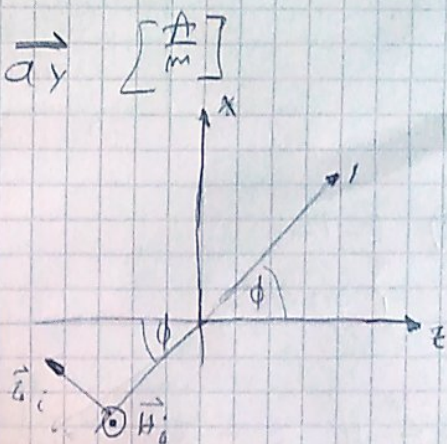 a⃗y [A/m]
x
ϕ
ϕ
z
i
H⃗i